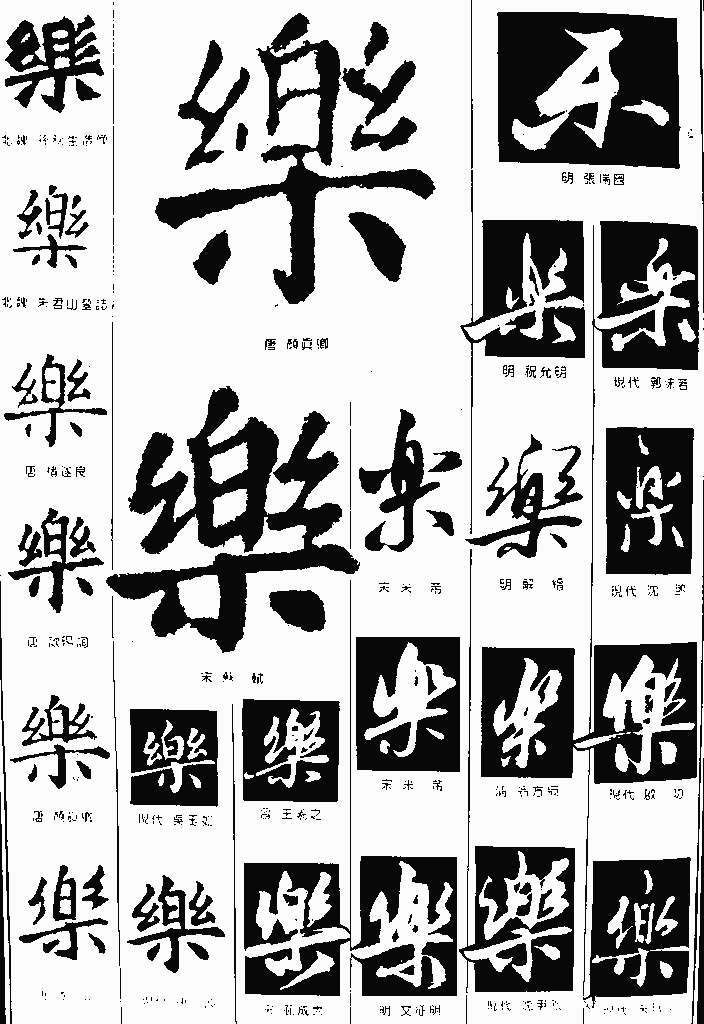 樂
北魏
樂
北魏 朱君山墓誌
樂
唐 褚遂良
樂
唐 歐陽詢
樂
唐 顏真卿
樂
樂
唐 顏眞卿
樂
宋 蘇軾
樂
現代 吳玉如
樂
樂
晉 王羲之
樂
樂
宋 米芾
樂
宋 米芾
樂
明 文徵明
乐
明 張瑞圖
樂
明 祝允明
樂
現代 郭沫若
樂
明 解縉
樂
現代 沈
樂
清
樂
現代 啟功
樂
現代 沈尹默
樂
現代